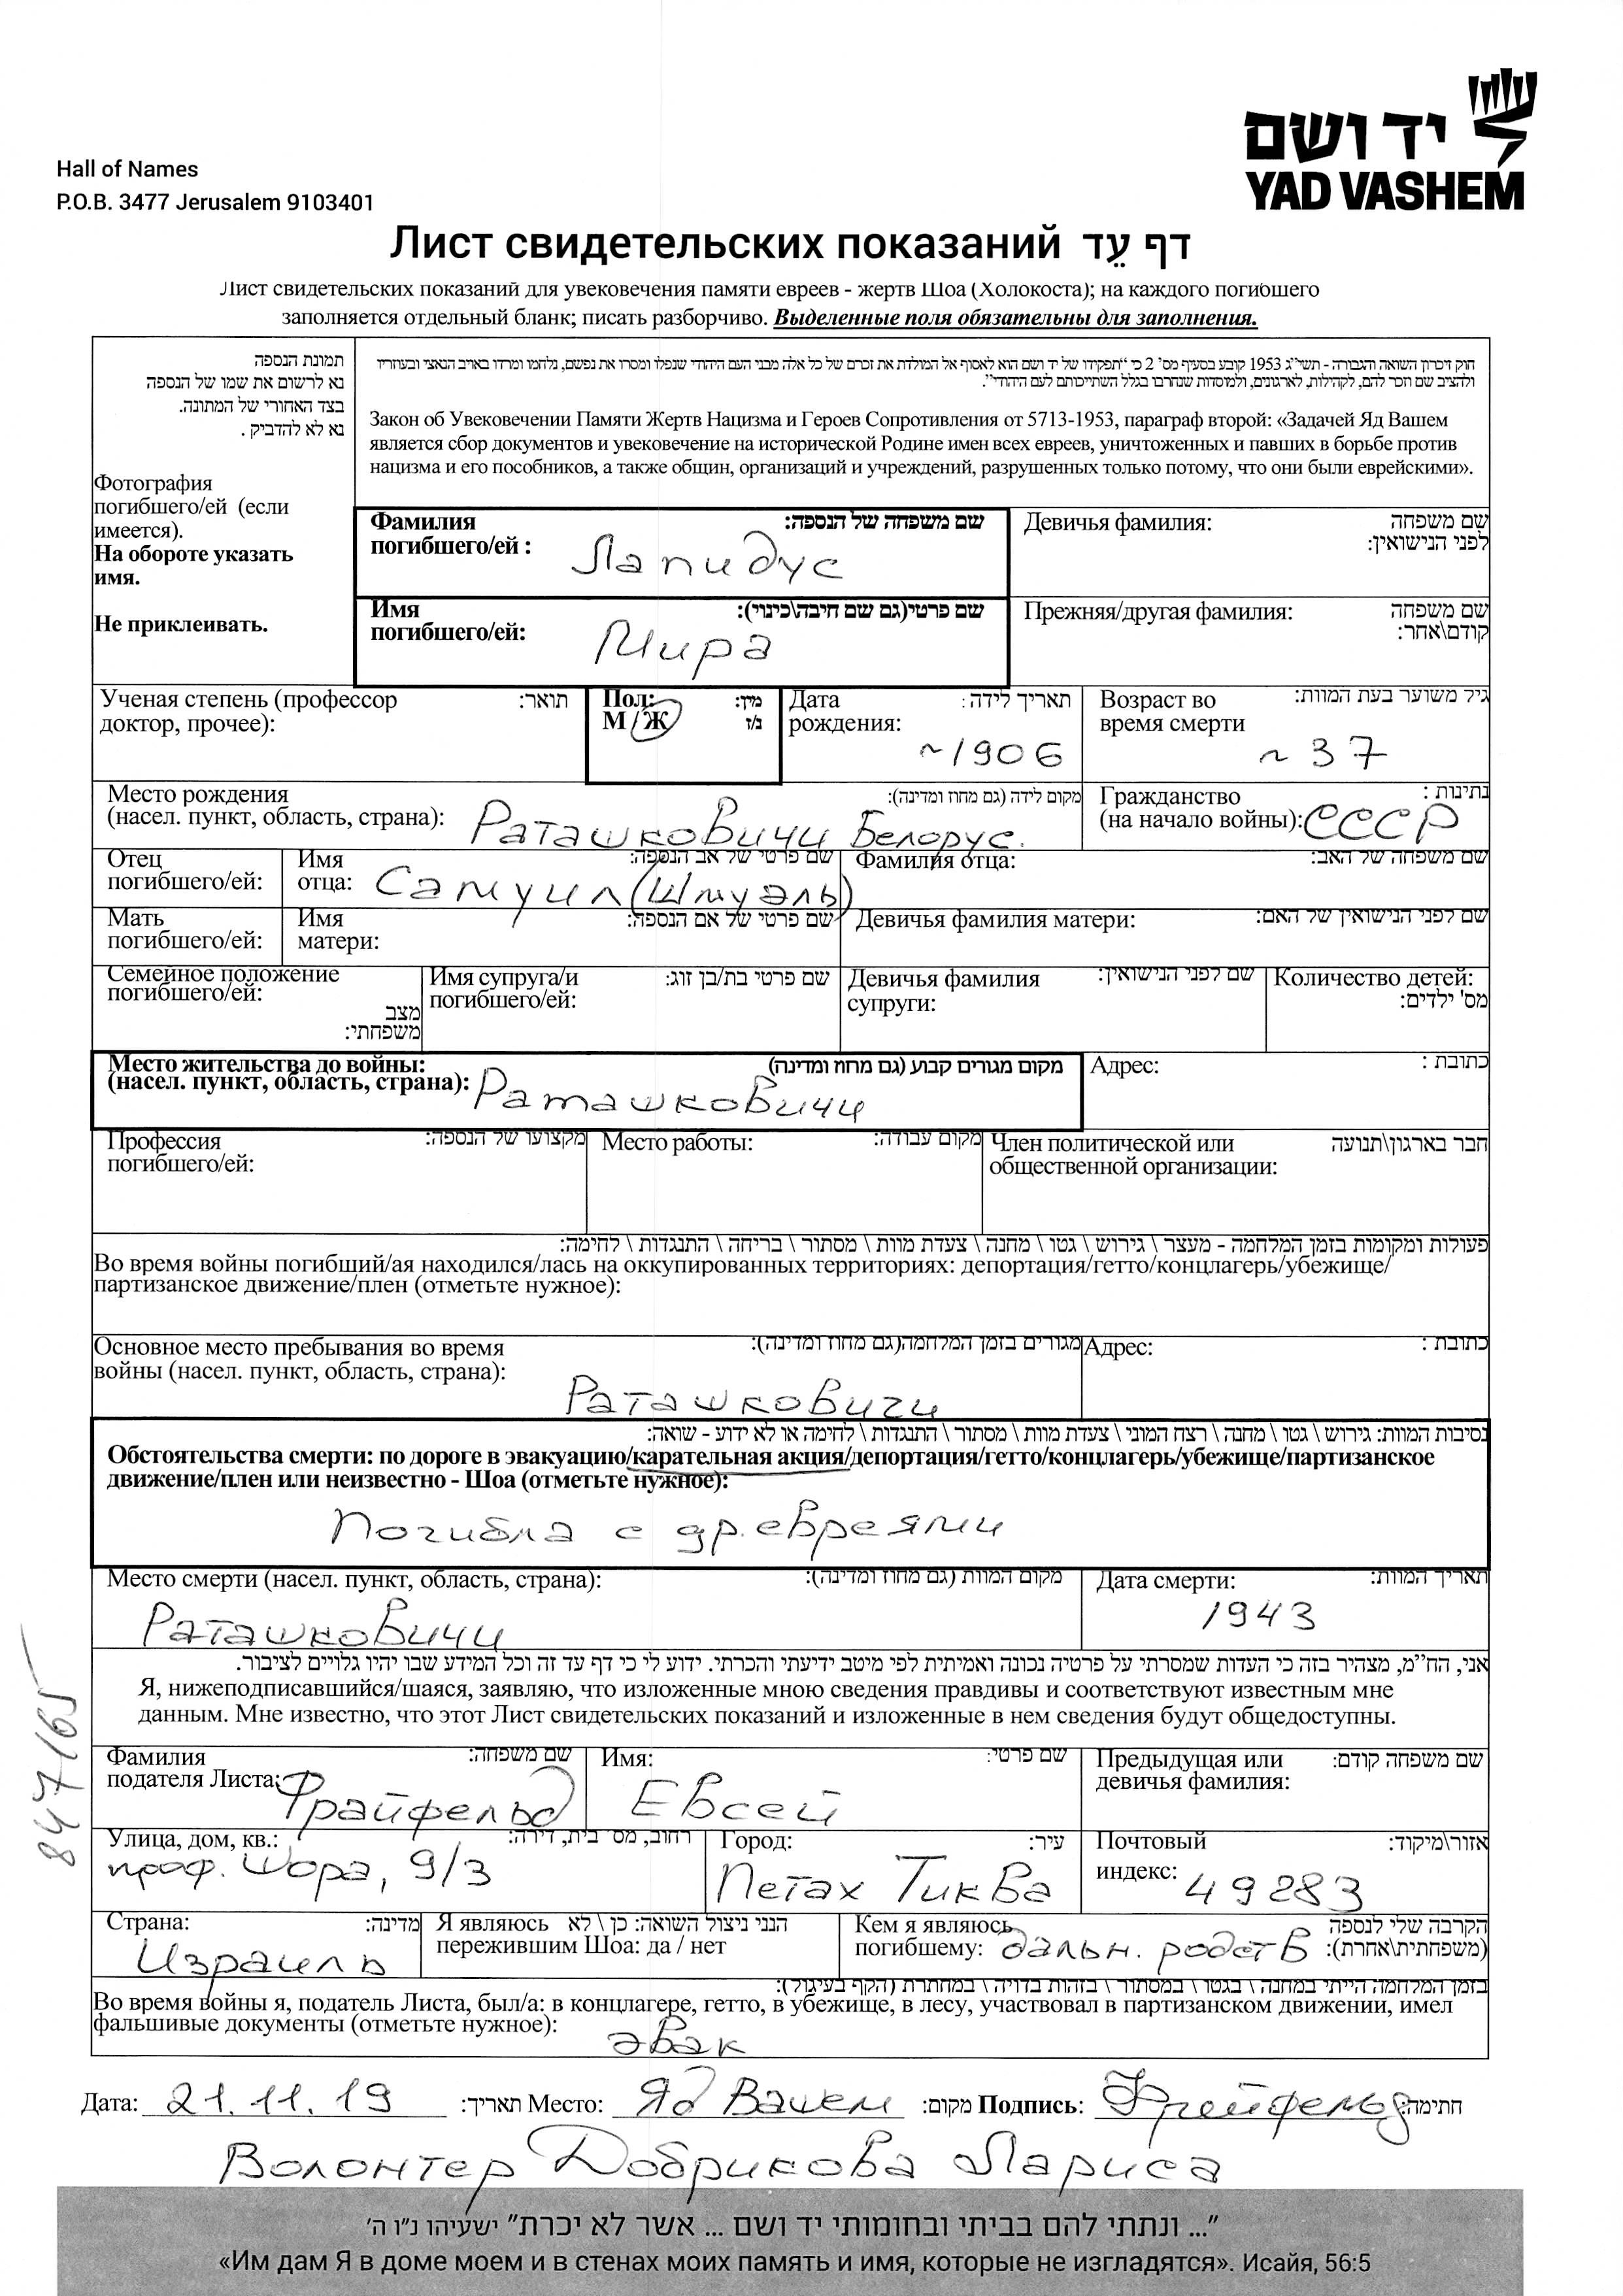 יד ושם
YAD VASHEM
Hall of Names
P.O.B. 3477 Jerusalem 9103401
Лист свидетельских показаний דף עֵד
Лист свидетельских показаний для увековечения памяти евреев - жертв Шоа (Холокоста); на каждого погибшего
заполняется отдельный бланк; писать разборчиво. Выделенные поля обязательны для заполнения.
תמונת הנספה
נא לרשום את שמו של הנספה
בצד האחורי של המתונה.
נא לא להדביק .
Фотография
погибшего/ей (если
имеется).
На обороте указать
имя.
Не приклеивать.
חוק זיכרון השואה והגבורה - תשי"ג 1953 קובע בסעיף מס' 2 כי "תפקידו של יד ושם הוא לאסוף אל המולדת את זכרם של כל אלה מבני העם היהודי שנפלו ומסרו את נפשם, נלחמו ומרדו באויב הנאצי ובעוזריו
ולהציב שם וזכר להם, לקהילות, לארגונים, ולמוסדות שנחרבו בגלל השתייכותם לעם היהודי".
Закон об Увековечении Памяти Жертв Нацизма и Героев Сопротивления от 5713-1953, параграф второй: «Задачей Яд Вашем
является сбор документов и увековечение на исторической Родине имен всех евреев, уничтоженных и павших в борьбе против
нацизма и его пособников, а также общин, организаций и учреждений, разрушенных только потому, что они были еврейскими».
Фамилия שם משפחה של הנספה:
погибшего/ей : Лапидус
Девичья фамилия: שם משפחה
לפני הנישואין:
Имя שם פרטי(גם שם חיבה\כינוי):
погибшего/ей: Мира
Прежняя/другая фамилия: שם משפחה
קודם\אחר:
Ученая степень (профессор תואר:
доктор, прочее):
Пол: מין:
М / Ж ז/נ
Дата תאריך לידה:
рождения: ~1906
Возраст во גיל משוער בעת המוות:
время смерти ~ 37
Место рождения מקום לידה (גם מחוז ומדינה):
(насел. пункт, область, страна): Раташковичи Белорус.
Гражданство נתינות :
(на начало войны): СССР
Отец
погибшего/ей:
Имя שם פרטי של אב הנספה:
отца: Самуил (Шмуэль)
Фамилия отца: שם משפחה של האב:
Мать
погибшего/ей:
Имя שם פרטי של אם הנספה:
матери:
Девичья фамилия матери: שם לפני הנישואין של האם:
Семейное положение
погибшего/ей:
מצב
משפחתי:
Имя супруга/и שם פרטי בת/בן זוג:
погибшего/ей:
Девичья фамилия שם לפני הנישואין:
супруги:
Количество детей:
מס' ילדים:
Место жительства до войны: מקום מגורים קבוע (גם מחוז ומדינה)
(насел. пункт, область, страна): Раташковичи
Адрес: כתובת :
Профессия מקצועו של הנספה:
погибшего/ей:
Место работы: מקום עבודה:
Член политической или חבר בארגון\תנועה
общественной организации:
פעולות ומקומות בזמן המלחמה - מעצר \ גירוש \ גטו \ מחנה \ צעדת מוות \ מסתור \ בריחה \ התנגדות \ לחימה:
Во время войны погибший/ая находился/лась на оккупированных территориях: депортация/гетто/концлагерь/убежище/
партизанское движение/плен (отметьте нужное):
Основное место пребывания во время מגורים בזמן המלחמה(גם מחוז ומדינה):
войны (насел. пункт, область, страна): Раташковичи
Адрес: כתובת :
נסיבות המוות: גירוש \ גטו \ מחנה \ רצח המוני \ צעדת מוות \ מסתור \ התנגדות \ לחימה או לא ידוע - שואה:
Обстоятельства смерти: по дороге в эвакуацию/карательная акция/депортация/гетто/концлагерь/убежище/партизанское
движение/плен или неизвестно - Шоа (отметьте нужное):
Погибла с др. евреями
Место смерти (насел. пункт, область, страна): מקום המוות (גם מחוז ומדינה):
Раташковичи
Дата смерти: תאריך המוות:
1943
אני, הח"מ, מצהיר בזה כי העדות שמסרתי על פרטיה נכונה ואמיתית לפי מיטב ידיעתי והכרתי. ידוע לי כי דף עד זה וכל המידע שבו יהיו גלויים לציבור.
Я, нижеподписавшийся/шаяся, заявляю, что изложенные мною сведения правдивы и соответствуют известным мне
данным. Мне известно, что этот Лист свидетельских показаний и изложенные в нем сведения будут общедоступны.
Фамилия שם משפחה:
подателя Листа: Фрайфельд
Имя: שם פרטי:
Евсей
Предыдущая или שם משפחה קודם:
девичья фамилия:
Улица, дом, кв.: רחוב, מס' בית, דירה:
проф. Шора, 9/3
Город: עיר:
Петах Тиква
Почтовый אזור\מיקוד:
индекс: 49283
Страна: מדינה:
Израиль
Я являюсь הנני ניצול השואה: כן \ לא
пережившим Шоа: да / нет
Кем я являюсь הקרבה שלי לנספה
погибшему: дальн. родств (משפחתית\אחרת):
בזמן המלחמה הייתי במחנה \ בגטו \ במסתור \ בזהות בדויה \ במחתרת (הקף בעיגול):
Во время войны я, податель Листа, был/а: в концлагере, гетто, в убежище, в лесу, участвовал в партизанском движении, имел
фальшивые документы (отметьте нужное): эвак
Дата: 21.11.19 תאריך: Место: Яд Вашем מקום: Подпись: Фрейфельд חתימה:
Волонтер Добрикова Лариса
847165
"... ונתתי להם בביתי ובחומותי יד ושם ... אשר לא יכרת" ישעיהו נ"ו ה'
«Им дам Я в доме моем и в стенах моих память и имя, которые не изгладятся». Исайя, 56:5